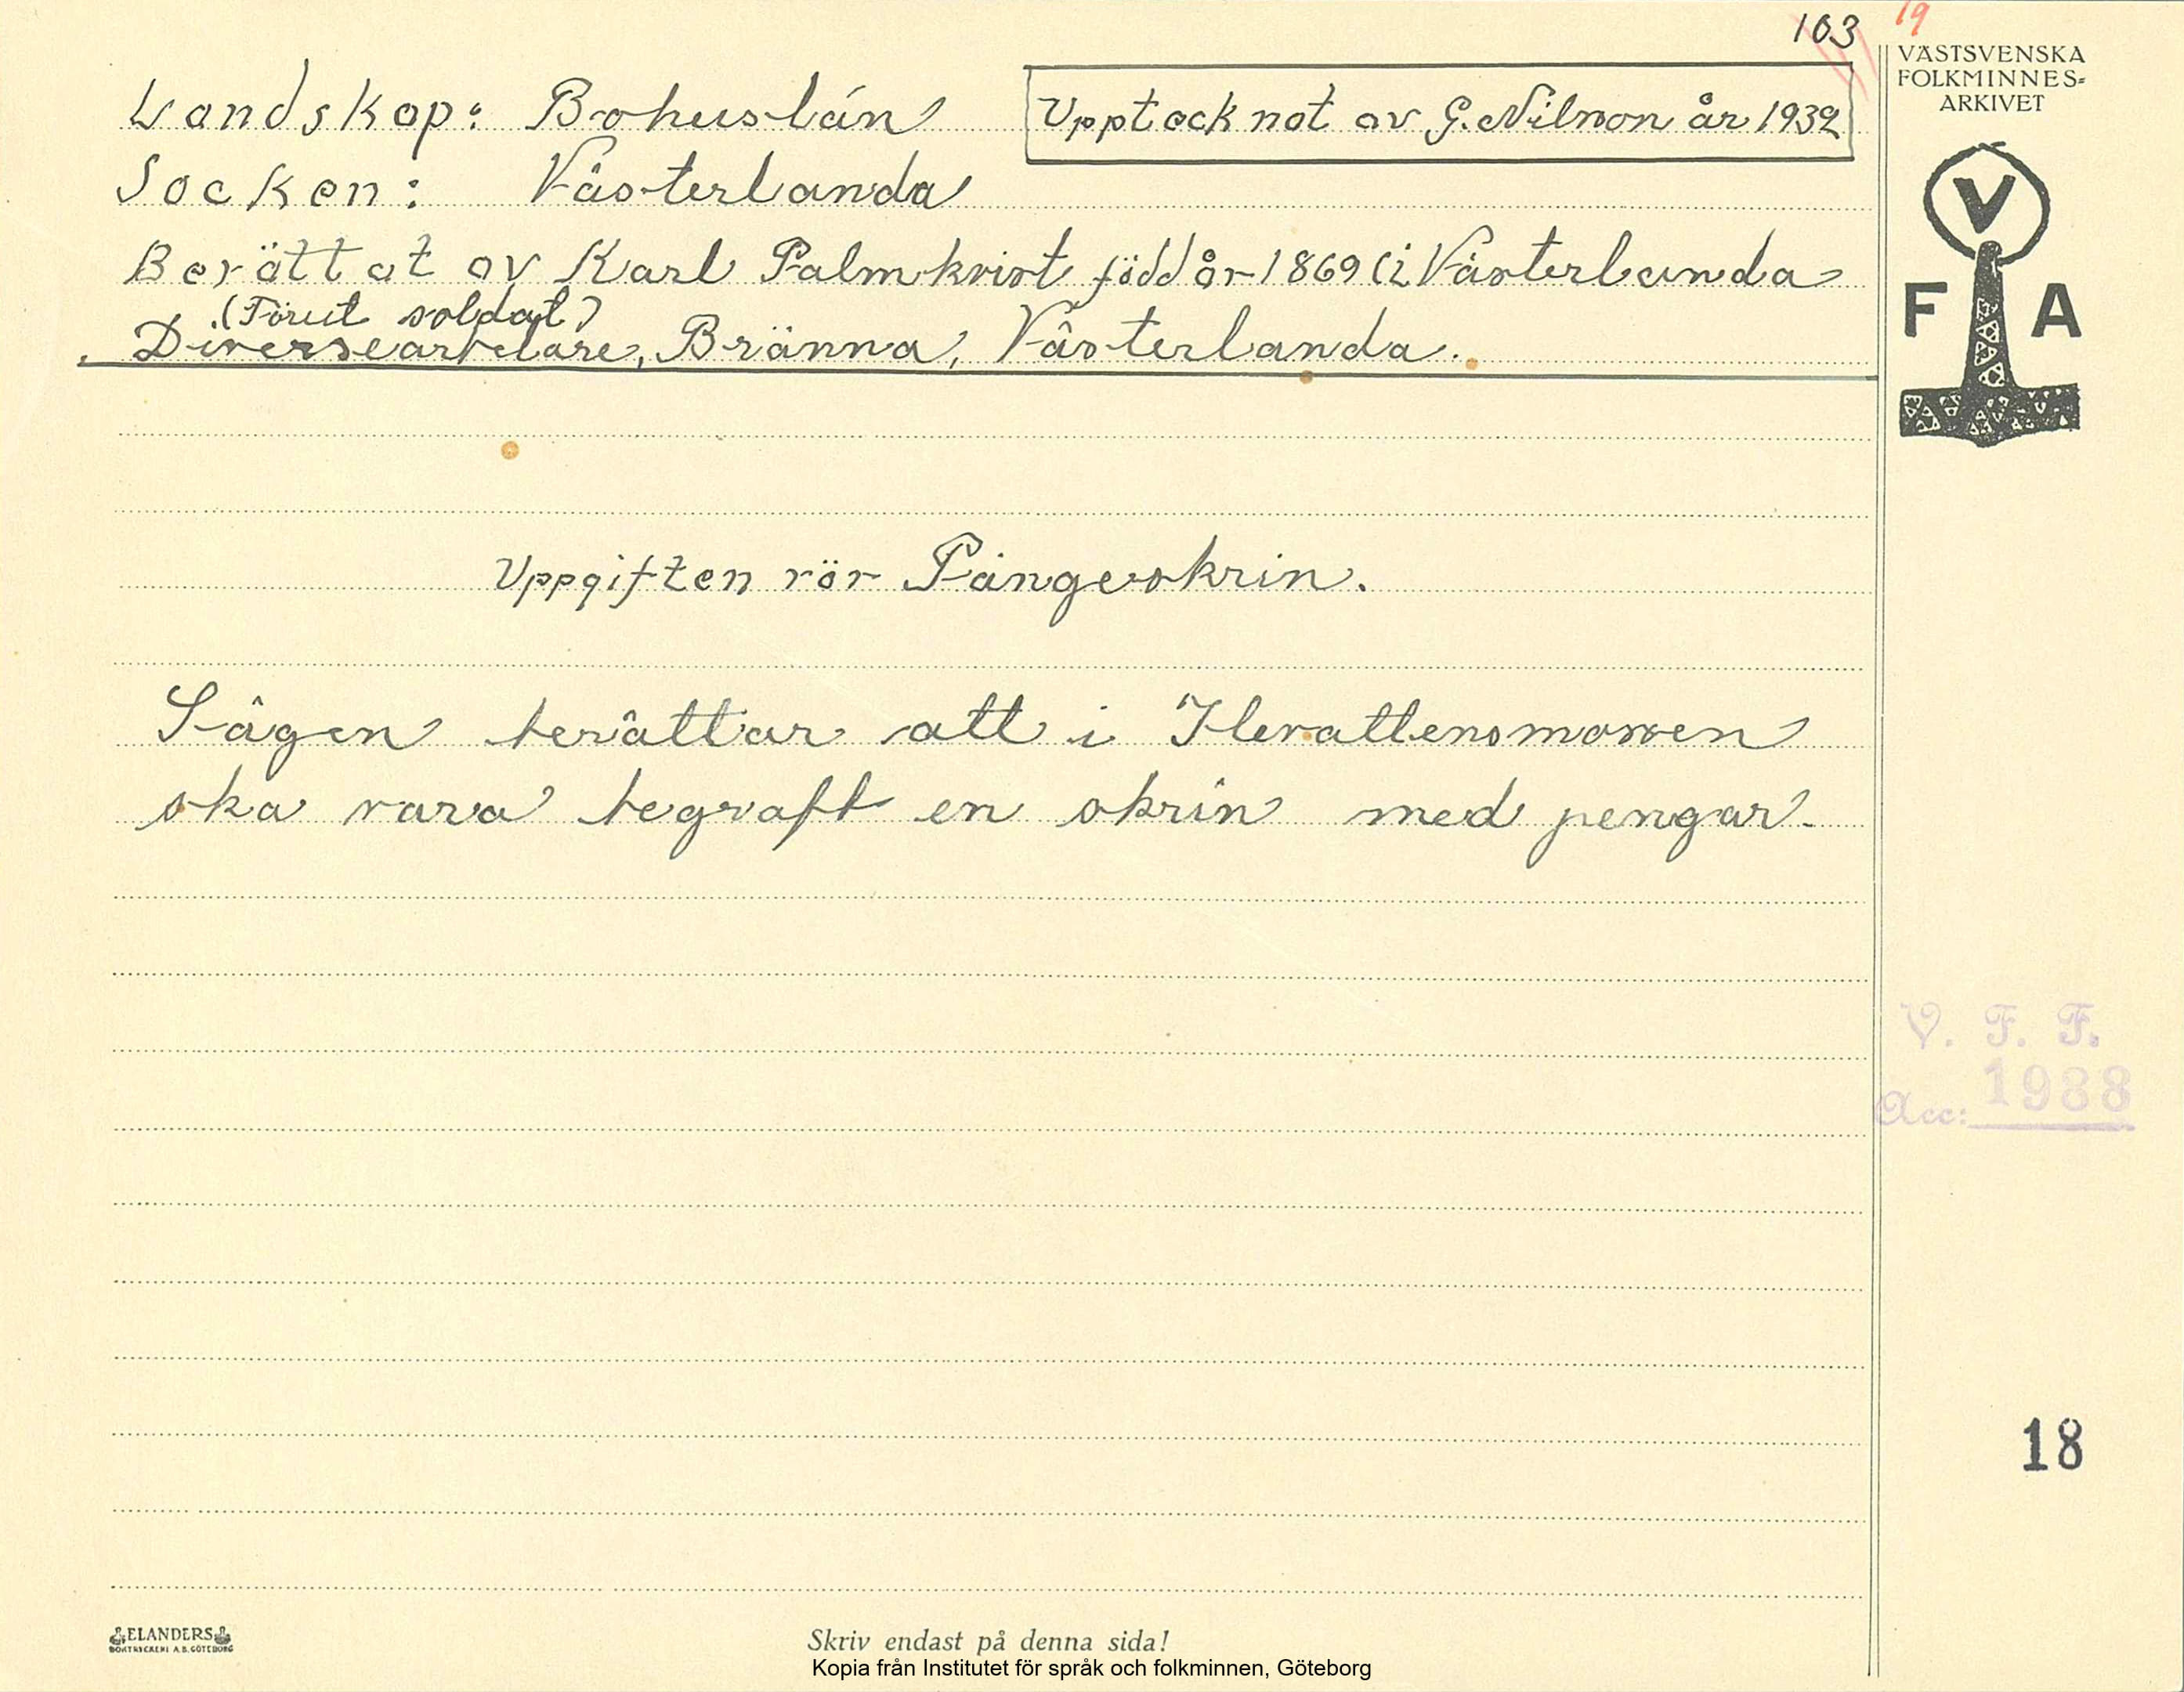 103 19
VÄSTSVENSKA
FOLKMINNES-
ARKIVET
Landskap: Bohuslän
Upptecknat av G. Nilsson år 1932
Socken: Västerlanda
Berättat av Karl Palmkvist född år 1869 (i Västerlanda
(Förut soldat)
Diversearbetare, Bränna, Västerlanda.
V
F A
Uppgiften rör Pängeskrin.
Sägen berättar att i
ska vara begraft en skrin med pengar.
V. F. F.
Acc: 1988
18
ELANDERS
BOKTRYCKERI A.B. GÖTEBORG
Skriv endast på denna sida!
Kopia från Institutet för språk och folkminnen, Göteborg